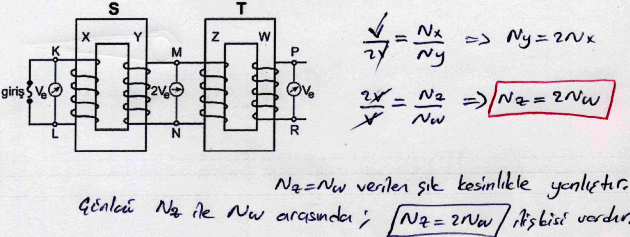 S T
X Y Z W
K M P
giriş Vₑ 2Vₑ Vₑ
L N R
V/2V = Nx/Ny => Ny = 2Nx
2V/V = Nz/Nw => Nz = 2Nw
Nz = Nw verilen şık kesinlikle yanlıştır.
Çünkü Nz ile Nw arasında; Nz = 2Nw ilişkisi vardır.